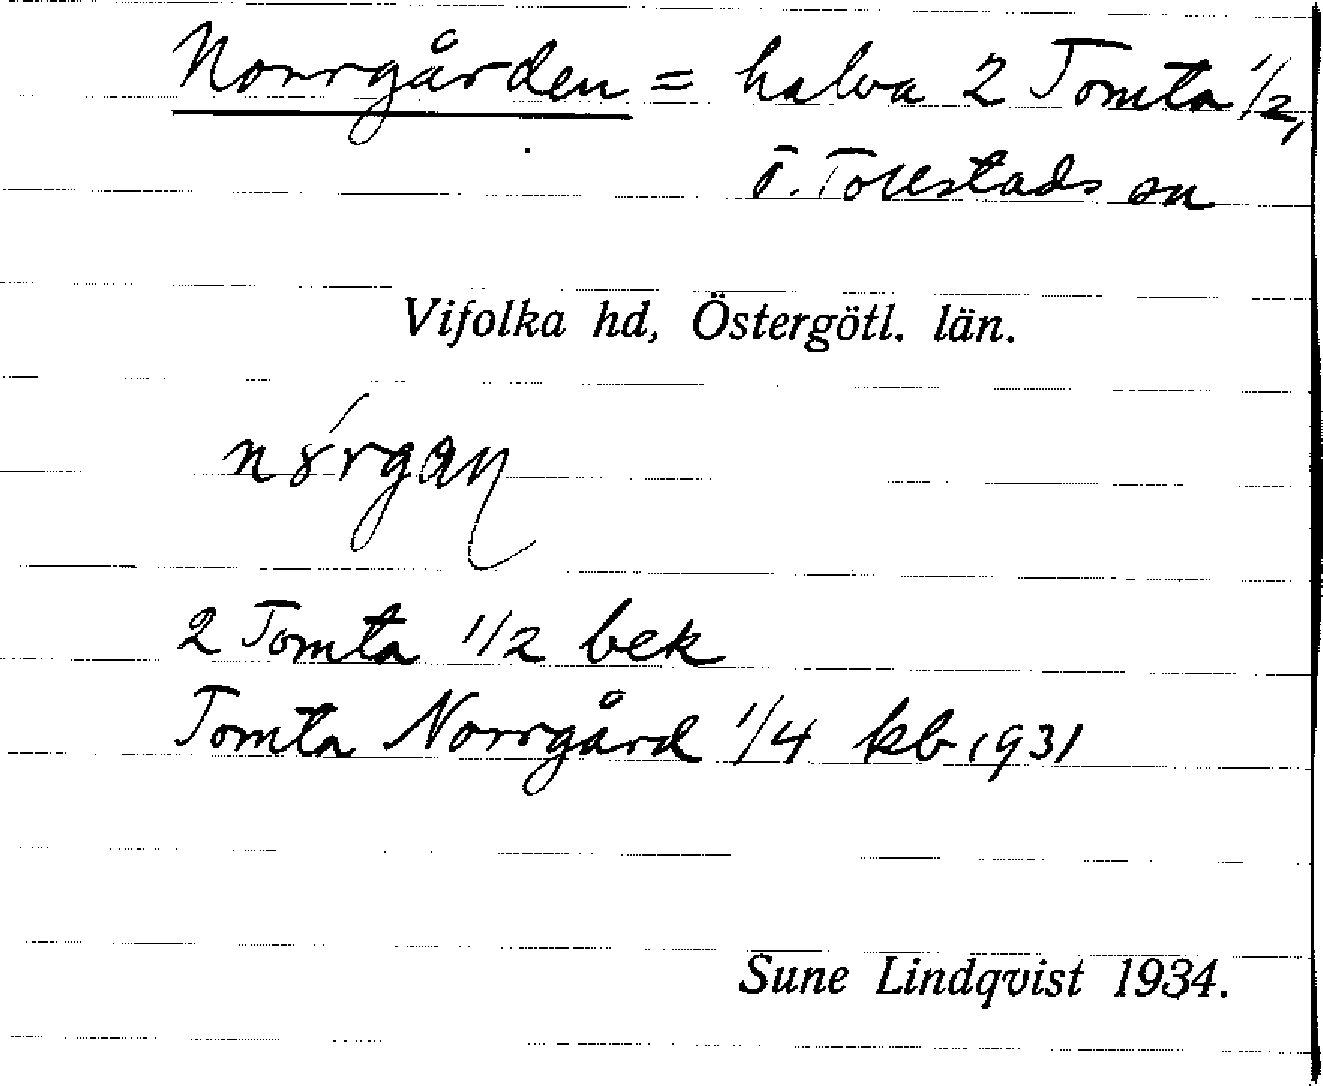 Norrgården = halva 2 Tomta 1/2,
Ö. Tollstads sn
Vifolka hd, Östergötl. län.
2 Tomta 1/2 bek
Tomta Norrgård 1/4 kb 1931
Sune Lindqvist 1934.